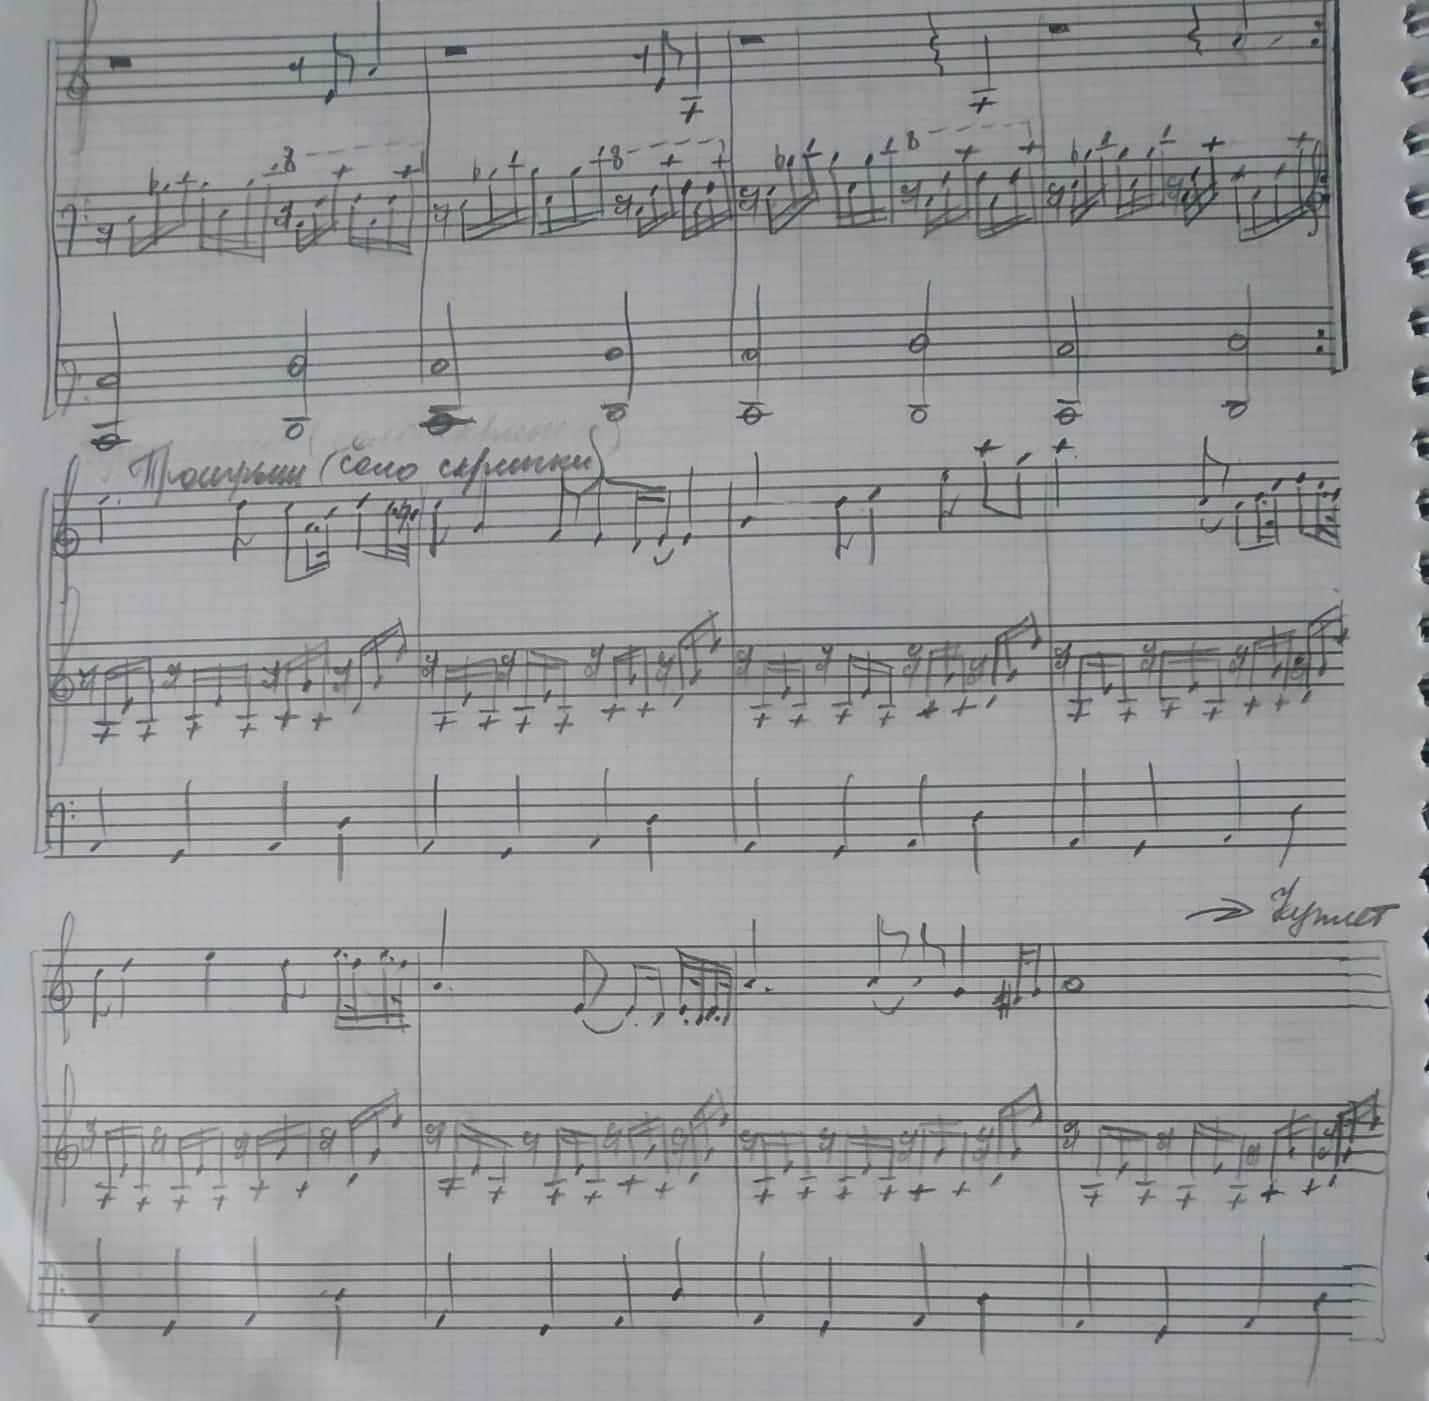 8
8
8
Проигрыш (соло скрипки)
→ Куплет